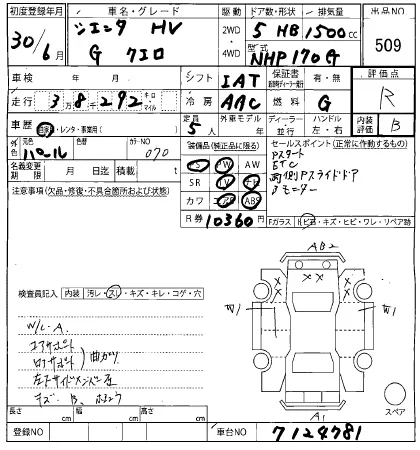 初度登録年月 車名・グレード 駆動 ドア数・形状 排気量 出品NO
30/6月 シエンタ HV 2WD 5 HB 1500cc 509
G クエロ 4WD 型式 NHP170G
車検 年 月 シフト IAT 保証書 有・無 評価点
走行 3万8千292 キロ・マイル 冷房 AAC 燃料 G R
車歴 自家用・レンタ・事業用( ) 定員 5人 外車モデル 年 ディーラー・並行 ハンドル 左・右 内装評価 B
外色 元色 パール 色替 カラーNO 070 装備品(純正品に限る) セールスポイント(正常に作動するもの)
名義変更期限 月 日 積載 t PS PW AW Pスタート
SR TV ナビ ETC
注意事項(欠品・修復・不具合箇所および状態) カワ エアB ABS 両側PAスライドドア
R券 10360円 Bモニター
Fガラス ヒビ・キズ・ヒビ・ワレ・リペア跡
AB2
検査員記入 内装 汚レ・スレ・キズ・キレ・コゲ・穴
W/C A
コアサポート
ロアサポート 曲ガリ
左フサイドメンバー
キズ B
W1 W1
A1
スペア
長さ cm 幅 cm 高さ cm
登録NO 車台NO 7124781